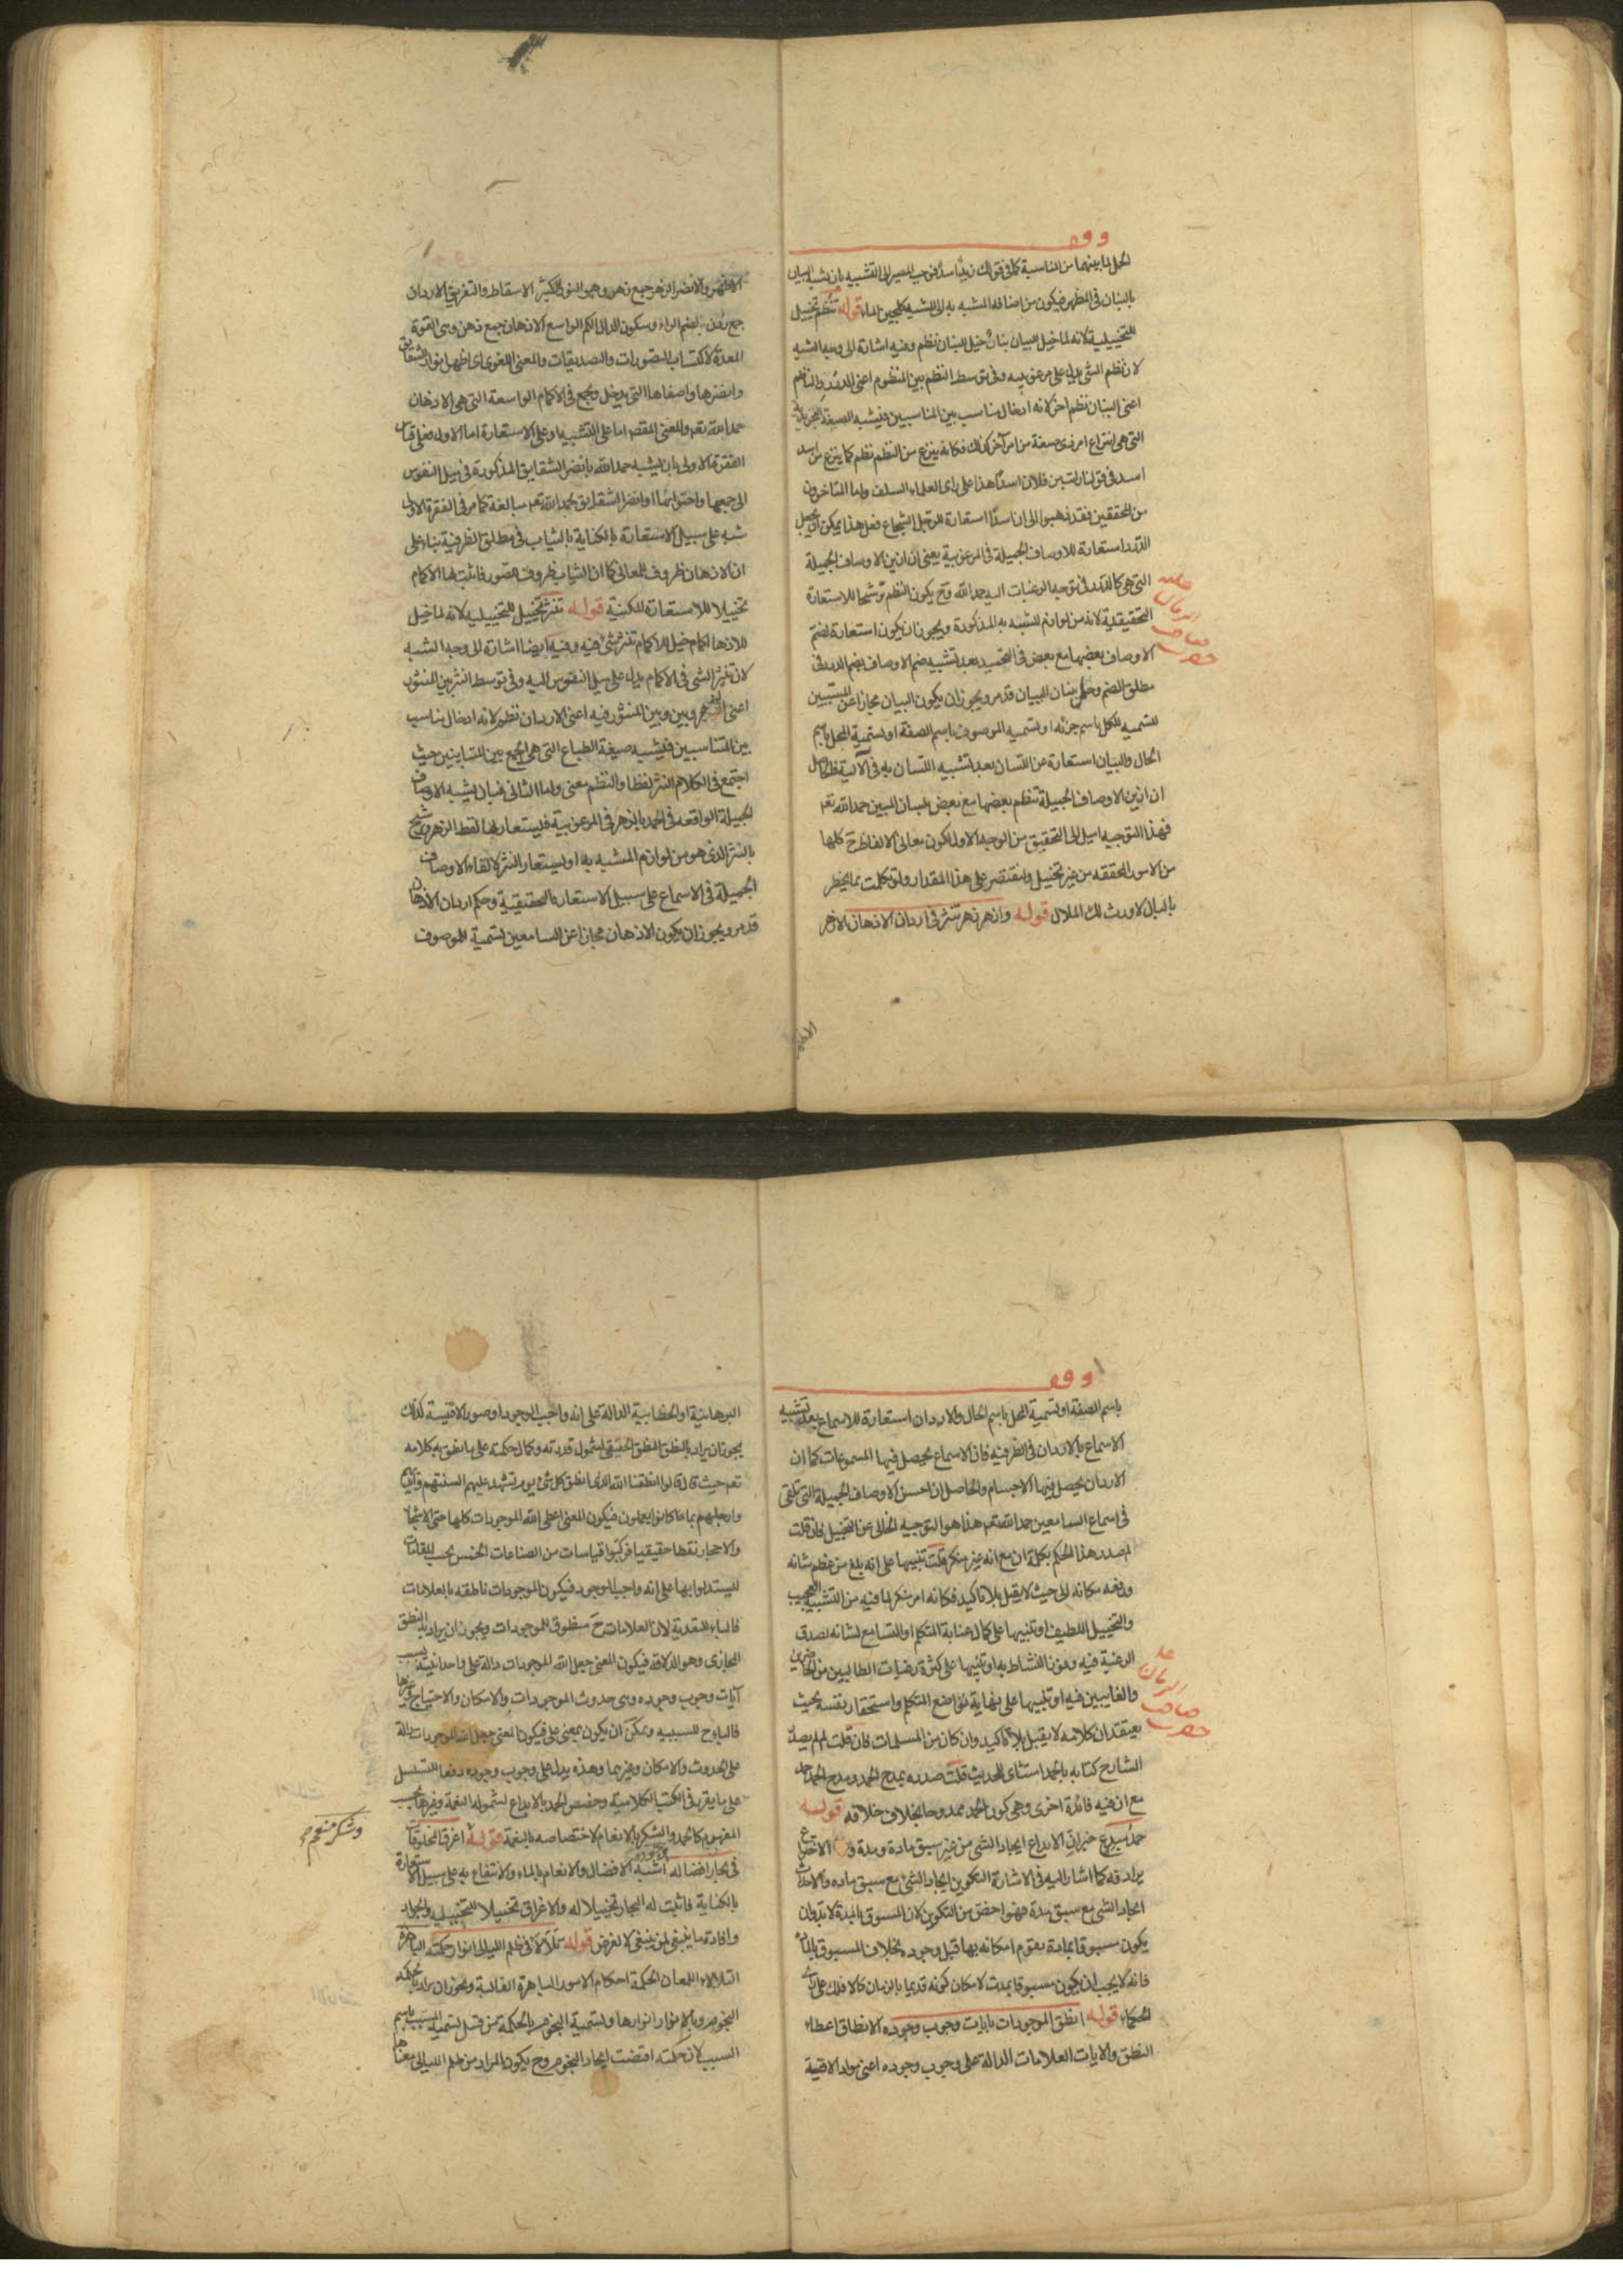 وقف
الحمل لما بينهما من المناسبة كما في قولك زيد اسد فوجب المصير الى التشبيه بان يشبه البيان
بالبنان في المظهر فيكون من اضافة المشبه به الى المشبه كلجين الماء قوله تنظم تخييل
للتخييلية لانه لما خيل للبيان بنان خيل للبنان نظم وفيه اشارة الى وجه الشبه
لان نظم الشي يدل على مرغوبيته وفي توسط النظم بين المنظوم اعني الدرر والناظم
اعني البنان نظم اخر لانه ادخال مناسب بين المناسبين فيشبه الصيغة التجريدية
التي هي انتزاع امر ذي صفة من امر آخر كذلك فكانه ينزع من النظم نظم كما ينزع من اسد
اسد في قولنا لقيت من فلان اسدا هذا على راى العلماء السلف واما المتاخرون
من المحققين فقد ذهبوا الى ان اسدا استعارة للرجل الشجاع فعل هذا يمكن ان يجعل
الدرر استعارة للاوصاف الجميلة في المرغوبية يعنى ان ازين الاوصاف الجميلة
التي هي كالدرر في توجه الرغبات اليه حمد الله وح يكون النظم ترشيحا للاستعارة
التحقيقية لانه من لوازم المشبه به المذكورة ويجوز ان يكون استعارة لضم
الاوصاف بعضها مع بعض في التحميد بعد تشبيه ضم الاوصاف بضم الدرر في
مطلق الضم وحكم بنان البيان قد مر ويجوز ان يكون البيان مجازا عن المبينين
لتسمية الكل باسم جزئه او لتسمية الموصوف باسم الصفة او لتسمية المحل باسم
الحال والبيان استعارة عن اللسان بعد تشبيه اللسان به في الآلية فالحاصل
ان ازين الاوصاف الجميلة تنظم بعضها مع بعض بلسان المبين حمد الله تعم
فهذا التوجيه اميل الى التحقيق من الوجه الاول لكون معانى الالفاظ ح كلها
من الامور المحققه من غير تخييل ولنقتصر على هذا المقدار ولو تكلمت بما يخطر
بالبال لاورث لك الملال قوله وازهر زهر تنثر في اردان الاذهان الازهر
الاظهر
الاظهر والانضر الزهر جمع زهر وهو النور النثر الاسقاط والتفريق الاردان
جمع ردن بضم الراء وسكون الدال الكم الواسع الاذهان جمع ذهن وهي القوة
المعدة لاكتساب التصورات والتصديقات والمعنى اللغوى اى اظهر انوار الشقايق
وانضرها واصفاها التي يدخل ويجمع في الاكمام الواسعة التي هي الاذهان
حمد الله تعم والمعنى المقصد اما على التشبيه او على الاستعارة اما الاول فعلى قياس
الفقرة الاولى بان يشبه حمد الله بانضر الشقايق المذكورة في ميل النفوس
الى جمعها واحتوائها او انضر الشقايق بحمد الله تعم مبالغة كما مر في الفقرة الاولى
شبه على سبيل الاستعارة بالكناية بالثياب في مطلق الظرفية بناء على
ان الاذهان ظروف المعانى كما ان الثياب ظروف الصور فاثبت لها الاكمام
تخييلا للاستعارة المكنية قوله تنثر تخييل للتخييلية لانه لما خيل
للاذهان اكمام خيل للاكمام تنثر شئ فيه وفيه ايضا اشارة الى وجه الشبه
لان تنثر الشى في الاكمام يدل على ميل النفوس اليه وفي توسط النثر بين المنثور
اعنى الزهر وبين المنثور فيه اعنى الاردان نظم لانه ادخال مناسب
بين المتناسبين فيشبه صيغة الطباع التي هي الجمع بين المتباينين حيث
اجتمع في الكلام النثر لفظا والنظم معنى واما الثانى فبان يشبه الاوصاف
الجميلة الواقعة في الحمد بالزهر في المرغوبية فليستعار لها لفظ الزهر ويرشح
بالنثر الذى هو من لوازم المشبه به او ليستعار النثر لالقاء الاوصاف
الجميلة في الاسماع على سبيل الاستعارة التحقيقية وحكم اردان الاذهان
قد مر ويجوز ان يكون الاذهان مجازا عن السامعين لتسمية الموصوف
وقف
باسم الصفة او لتسمية المحل باسم الحال والاردان استعارة للاسماع بعد تشبيه
الاسماع بالاردان في الظرفيه فان الاسماع يحصل فيها المسموعات كما ان
الاردان يحصل فيها الاجسام والحاصل ان احسن الاوصاف الجميلة التي تلقى
في اسماع السامعين حمد الله تعم هذا هو التوجيه الخالى عن التخييل فان قلت
لم صدر هذا الحكم بكلمة ان مع انه غير منكر قلت تنبيها على انه بلغ من عظم شانه
ورفعه مكانه الى حيث لا يقبل بلا تاكيد فكانه امر منكر لما فيه من التشبيه العجيب
والتخييل اللطيف او تنبيها على كمال عناية المتكلم او السامع لشانه لصدق
الرغبة فيه ووفور النشاط به او تنبيها على كثرة رغبات الطالبين من الحاضرين
والغايبين فيه او تنبيها على نهاية تواضع المتكلم واستحقار نفسه بحيث
يعتقد ان كلامه لا يقبل بلا تاكيد وان كان من المسلمات فان قلت لم لم يصدر
الشارح كتابه بالحمد امتثالا للحديث قلت صدره بمدح الحمد ومدح الحمد حمد
مع ان فيه فائدة اخرى وهي كون الحمد ممدوحا بخلاف خلافه قوله
حمد مبدع خبر ان الابداع ايجاد الشى من غير سبق مادة ومدة والاختراع
يرادفه كما اشار اليه في الاشارة التكوين ايجاد الشئ مع سبق ماده والاحداث
ايجاد الشى مع سبق مدة فهو اخص من التكوين لان المسبوق بالمدة لابد وان
يكون مسبوقا بمادة يقوم امكانه بها قبل وجوده بخلاف المسبوق بالمادة
فانه لا يجب ان يكون مسبوقا بمدت لامكان كونه قديما بالزمان كالافلاك على راى
الحكماء قوله انطق الموجودات بايات وجوب وجوده الانطاق اعطاء
النطق والايات العلامات الدالة على وجوب وجوده اعنى مواد الاقيسة
البرهانية او الخطابية الدالة على انه واجب الوجود او صور الاقيسة كذلك
يجوز ان يراد بالنطق النطق الحقيقى لشمول قدرته وكمال حكمته على ما نطق به كلامه
تعم حيث قال قالوا انطقنا الله الذى انطق كل شئ يوم تشهد عليهم السنتهم وايديهم
وارجلهم بما كانوا يعملون فيكون المعنى اعطى الله الموجودات كلها حتى الاشجار
والاحجار نطقا حقيقيا فركبوا قياسات من الصناعات الخمس بحسب المقامات
ليستدلوا بها على انه واجب الوجود فيكون الموجودات ناطقه بالعلامات
فالباء للتعدية لان العلامات ح منطوق الموجودات ويجوز ان يراد به النطق
المجازى وهو الدلالة فيكون المعنى جعل الله الموجودات دالة على واحدانيته بسبب
آيات وجوب وجوده وهى حدوث الموجودات والامكان والاحتياج وغيرها
فالباء ح للسببيه ويمكن ان يكون بمعنى على فيكون المعنى جعل الله الموجودات دالة
على الحدوث والامكان وغيرهما وهذه يدل على وجوب وجوده دفعا للتسلسل
على ما يقرر في الكتب الكلامية وخصص الحمد بالابداع لشموله النعمة وغيرها بحسب
المفهوم كالحمد والشكر بالانعام لاختصاصه بالنعمة قوله اغرق المخلوقات
وشكر منعم
في بحار افضاله اشبه الافضال والانعام بالماء والانتفاع به على سبيل الاستعارة
بالكناية فاثبت له البحار تخييلا له والاغراق تخييلا للتخييليه والجواد
وافادة ما ينبغى لمن ينبغى لا لغرض قوله تلألأ في ظلم الليالى انوار حكمته الباهرة
التلألأ اللمعان الحكمة احكام الامور الباهرة الغالبة ويجوز ان يراد بالحكمه
النجوم وبالانوار انوارها وتسمية النجوم بالحكمة من قبيل تسمية المسبب باسم
السبب لان حكمته اقتضت ايجاد النجوم وح يكون المراد من ظلم الليالى معناها